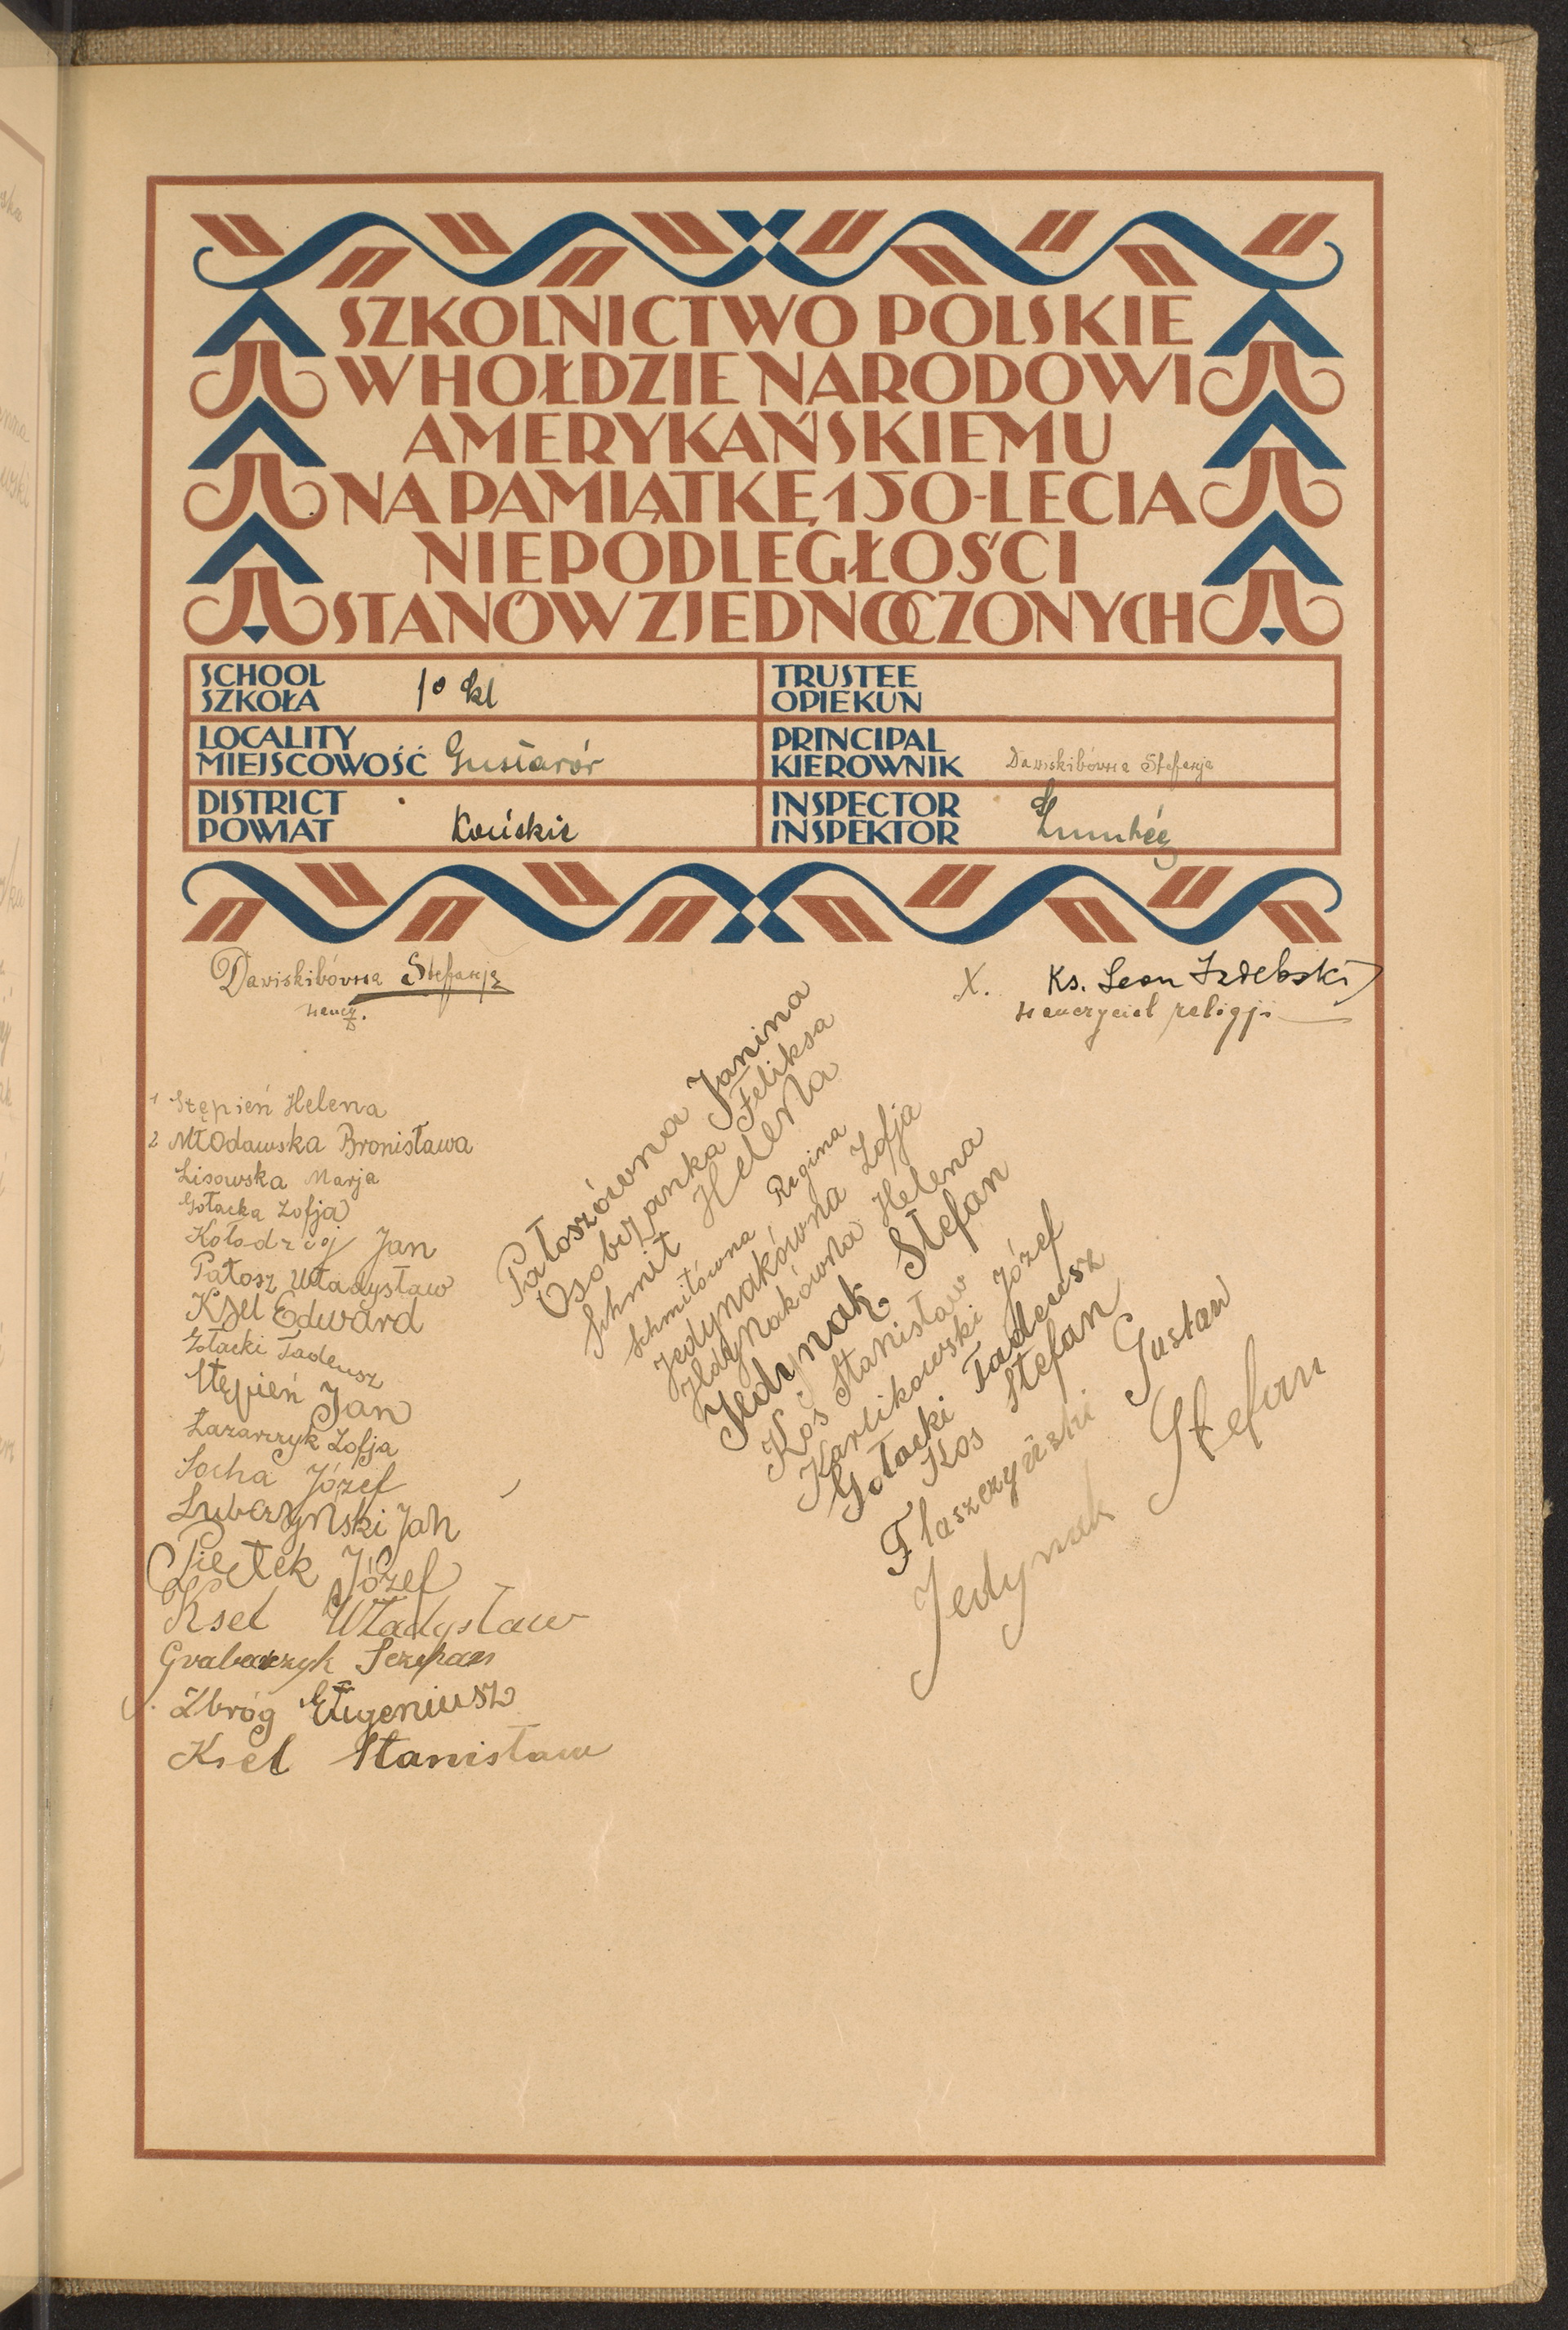 SZKOLNICTWO POLSKIE
W HOŁDZIE NARODOWI
AMERYKAŃSKIEMU
NA PAMIĄTKĘ 150-LECIA
NIEPODLEGŁOŚCI
STANÓW ZJEDNOCZONYCH
SCHOOL
SZKOŁA 1º kl
TRUSTEE
OPIEKUN
LOCALITY
MIEJSCOWOŚĆ Gustawów
PRINCIPAL
KIEROWNIK Dawiskibówna Stefanja
DISTRICT
POWIAT Końskie
INSPECTOR
INSPEKTOR
Dawiskibówna Stefanja
naucz.
X. Ks. Leon Izdebski
nauczyciel religji
1 Stępień Helena
2 Młodawska Bronisława
Lisowska Marja
Gołacka Zofja
Kołodziej Jan
Patosz Władysław
Ksel Edward
Gołacki Tadeusz
Stępień Jan
Łazarczyk Zofja
Socha Józef
Lubczyński Jan
Piętek Józef
Ksel Władysław
Grabarczyk Szczepan
Zbróg Eugeniusz
Ksel Stanisław
Patoszówna Janina
Osobczanka Feliksa
Schmit Helena
Schmitówna Regina
Jedynakówna Zofja
Jedynakówna Helena
Jedynak Stefan
Kos Stanisław
Karlikowski Józef
Gołacki Tadeusz
Kos Stefan
Flaszczyński Gustaw
Jedynak Stefan